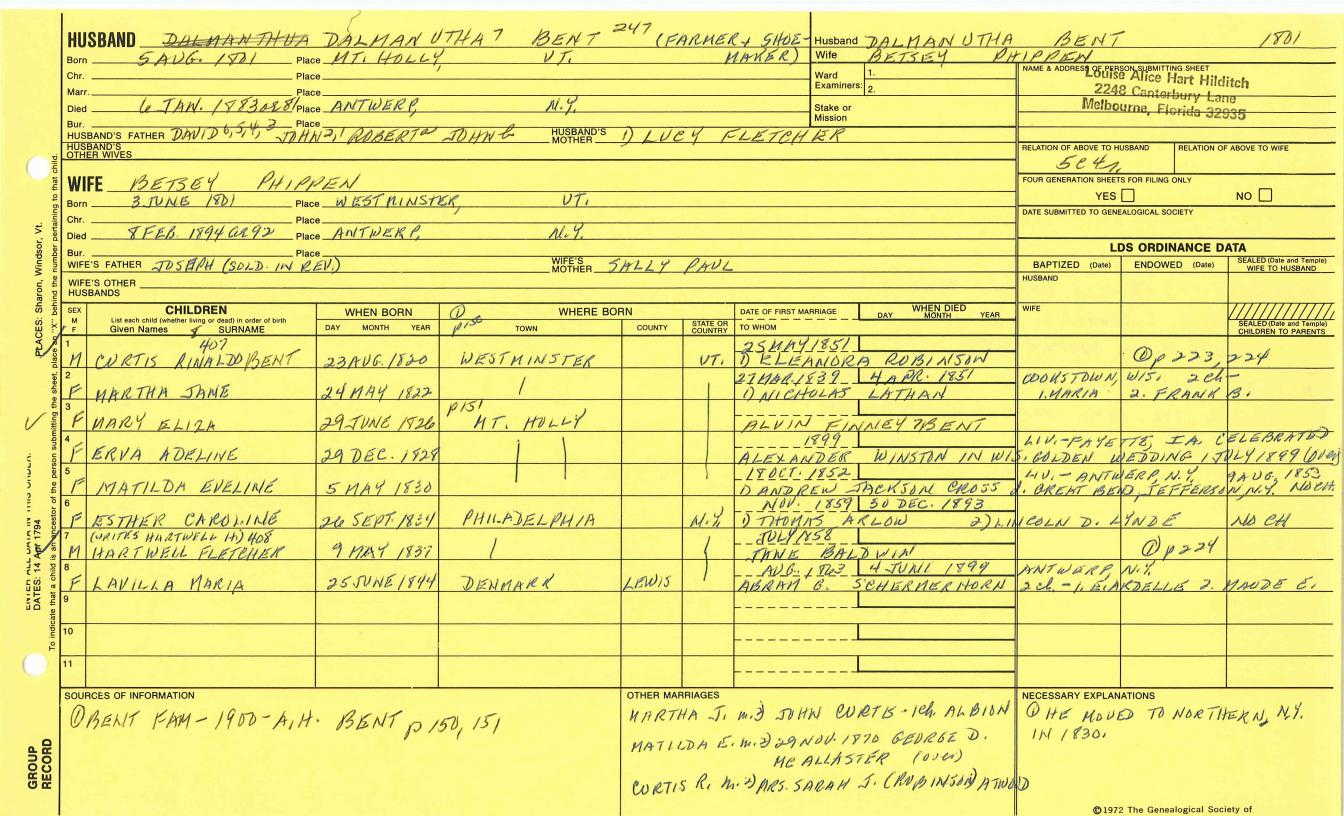 HUSBAND DALMANTHUA DALMANUTHA 7 BENT 247 (FARMER + SHOE-MAKER)
Born 5 AUG. 1801 Place MT. HOLLY, VT.
Chr. Place
Marr. Place
Died 6 JAN. 1883 OR 81 Place ANTWERP, N.Y.
Bur. Place
HUSBAND'S FATHER DAVID 6,5,4,3 JOHN 2,1 ROBERT JOHN HUSBAND'S MOTHER 1) LUCY FLETCHER
HUSBAND'S OTHER WIVES
Husband DALMANUTHA BENT 1801
Wife BETSEY PHIPPEN
Ward Examiners: 1. 2.
Stake or Mission
NAME & ADDRESS OF PERSON SUBMITTING SHEET
Louise Alice Hart Hilditch
2248 Canterbury Lane
Melbourne, Florida 32935
RELATION OF ABOVE TO HUSBAND RELATION OF ABOVE TO WIFE
5C4r
FOUR GENERATION SHEETS FOR FILING ONLY
YES NO
DATE SUBMITTED TO GENEALOGICAL SOCIETY
WIFE BETSEY PHIPPEN
Born 3 JUNE 1801 Place WESTMINSTER, VT.
Chr. Place
Died 8 FEB. 1894 OR 92 Place ANTWERP, N.Y.
Bur. Place
WIFE'S FATHER JOSEPH (SOLD. IN REV.) WIFE'S MOTHER SALLY PAUL
WIFE'S OTHER HUSBANDS
LDS ORDINANCE DATA
BAPTIZED (Date) ENDOWED (Date) SEALED (Date and Temple) WIFE TO HUSBAND
HUSBAND
WIFE
SEALED (Date and Temple) CHILDREN TO PARENTS
SEX M F
CHILDREN
List each child (whether living or dead) in order of birth
Given Names SURNAME
WHEN BORN DAY MONTH YEAR
① p150 WHERE BORN TOWN COUNTY STATE OR COUNTRY
DATE OF FIRST MARRIAGE
TO WHOM
WHEN DIED DAY MONTH YEAR
407 25 MAY 1851
1 M CURTIS RINALDO BENT 23 AUG. 1820 WESTMINSTER VT. 1) ELEANDRA ROBINSON ① p 223, 224
27 MAR. 1839 4 APR. 1851 COOKSTOWN, WIS. 2ch-
2 F MARTHA JANE 24 MAY 1822 1) NICHOLAS LATHAN 1. MARIA 2. FRANK B.
p151
3 F MARY ELIZA 29 JUNE 1826 MT. HOLLY ALVIN FINNEY 7 BENT
1899 LIV.-FAYETTE, IA. CELEBRATED
4 F ERVA ADELINE 29 DEC. 1828 ALEXANDER WINSTON IN WIS. GOLDEN WEDDING 1 JULY 1899 (over)
18 OCT. 1852 LIV.- ANTWERP, N.Y. 9 AUG, 1853
5 F MATILDA EVELINE 5 MAY 1830 1) ANDREW JACKSON CROSS d. GREAT BEND, JEFFERSON, N.Y. NO CH.
NOV. 1859 30 DEC. 1893
6 F ESTHER CAROLINE 26 SEPT. 1834 PHILADELPHIA N.Y. 1) THOMAS ARLOW 2) LINCOLN D. LYNDE NO CH
(WRITES HARTWELL H) 408 JULY 1858
7 M HARTWELL FLETCHER 9 MAY 1837 JANE BALDWIN ① p 224
AUG, 1863 4 JUNE 1899 ANTWERP, N.Y.
8 F LAVILLA MARIA 25 JUNE 1844 DENMARK LEWIS ABRAM G. SCHERMERHORN 2 ch - 1. E. ARDELLE 2. MAUDE E.
9
10
11
SOURCES OF INFORMATION
① BENT FAM - 1900 - A.H. BENT p 150, 151
OTHER MARRIAGES
MARTHA J. m. 2) JOHN CURTIS - 1ch. ALBION
MATILDA E. m. 2) 29 NOV. 1870 GEORGE D. MCALLASTER (over)
CURTIS R. m. 2) MRS. SARAH J. (ROBINSON) ATWOOD
NECESSARY EXPLANATIONS
① HE MOVED TO NORTHERN, N.Y. IN 1830.
©1972 The Genealogical Society of
PLACES: Sharon, Windsor, Vt.
ENTER ALL DATA IN THIS ORDER:
DATES: 14 Apr 1794
To indicate that a child is an ancestor of the person submitting the sheet, place an "X" behind the number pertaining to that child.
GROUP RECORD